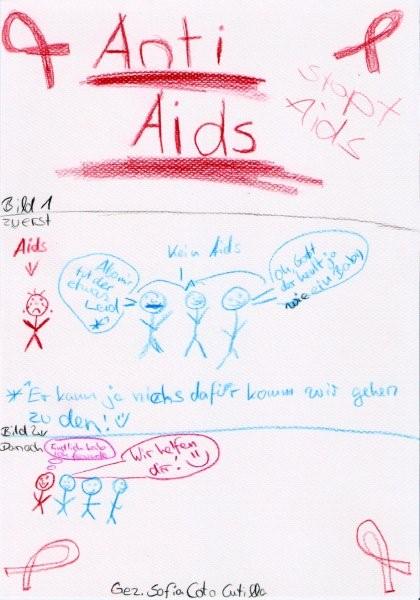 Anti
Aids
Stopt
Aids
Bild 1
zuerst
Aids
Kein Aids
tut der
etwas
Leid
*
Oh, Gott
der heult ja
wie ein Baby
* Er kann ja nichs dafür komm wir gehen
zu den!
Bild 2
Danach
Endlich habe
ich
Wir helfen
dir!
Gez. Sofia Coto